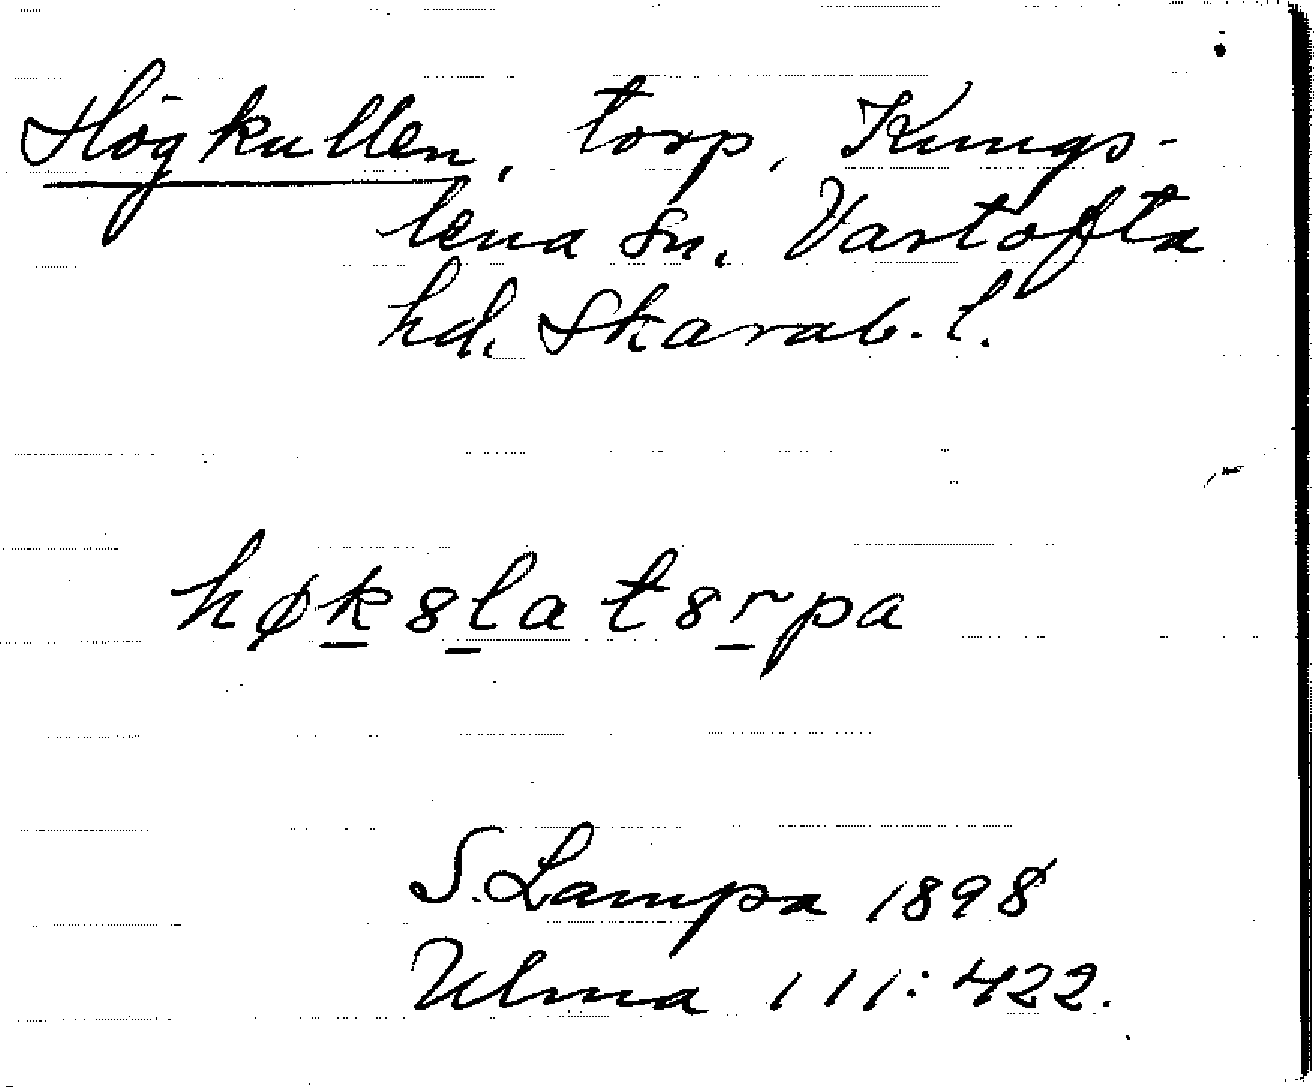 Högkullen, torp, Kungs-
lena sn. Vartofta
hd. Skarab. l.
høk8la t8rpa
S. Lampa 1898
Ulma 111:422.